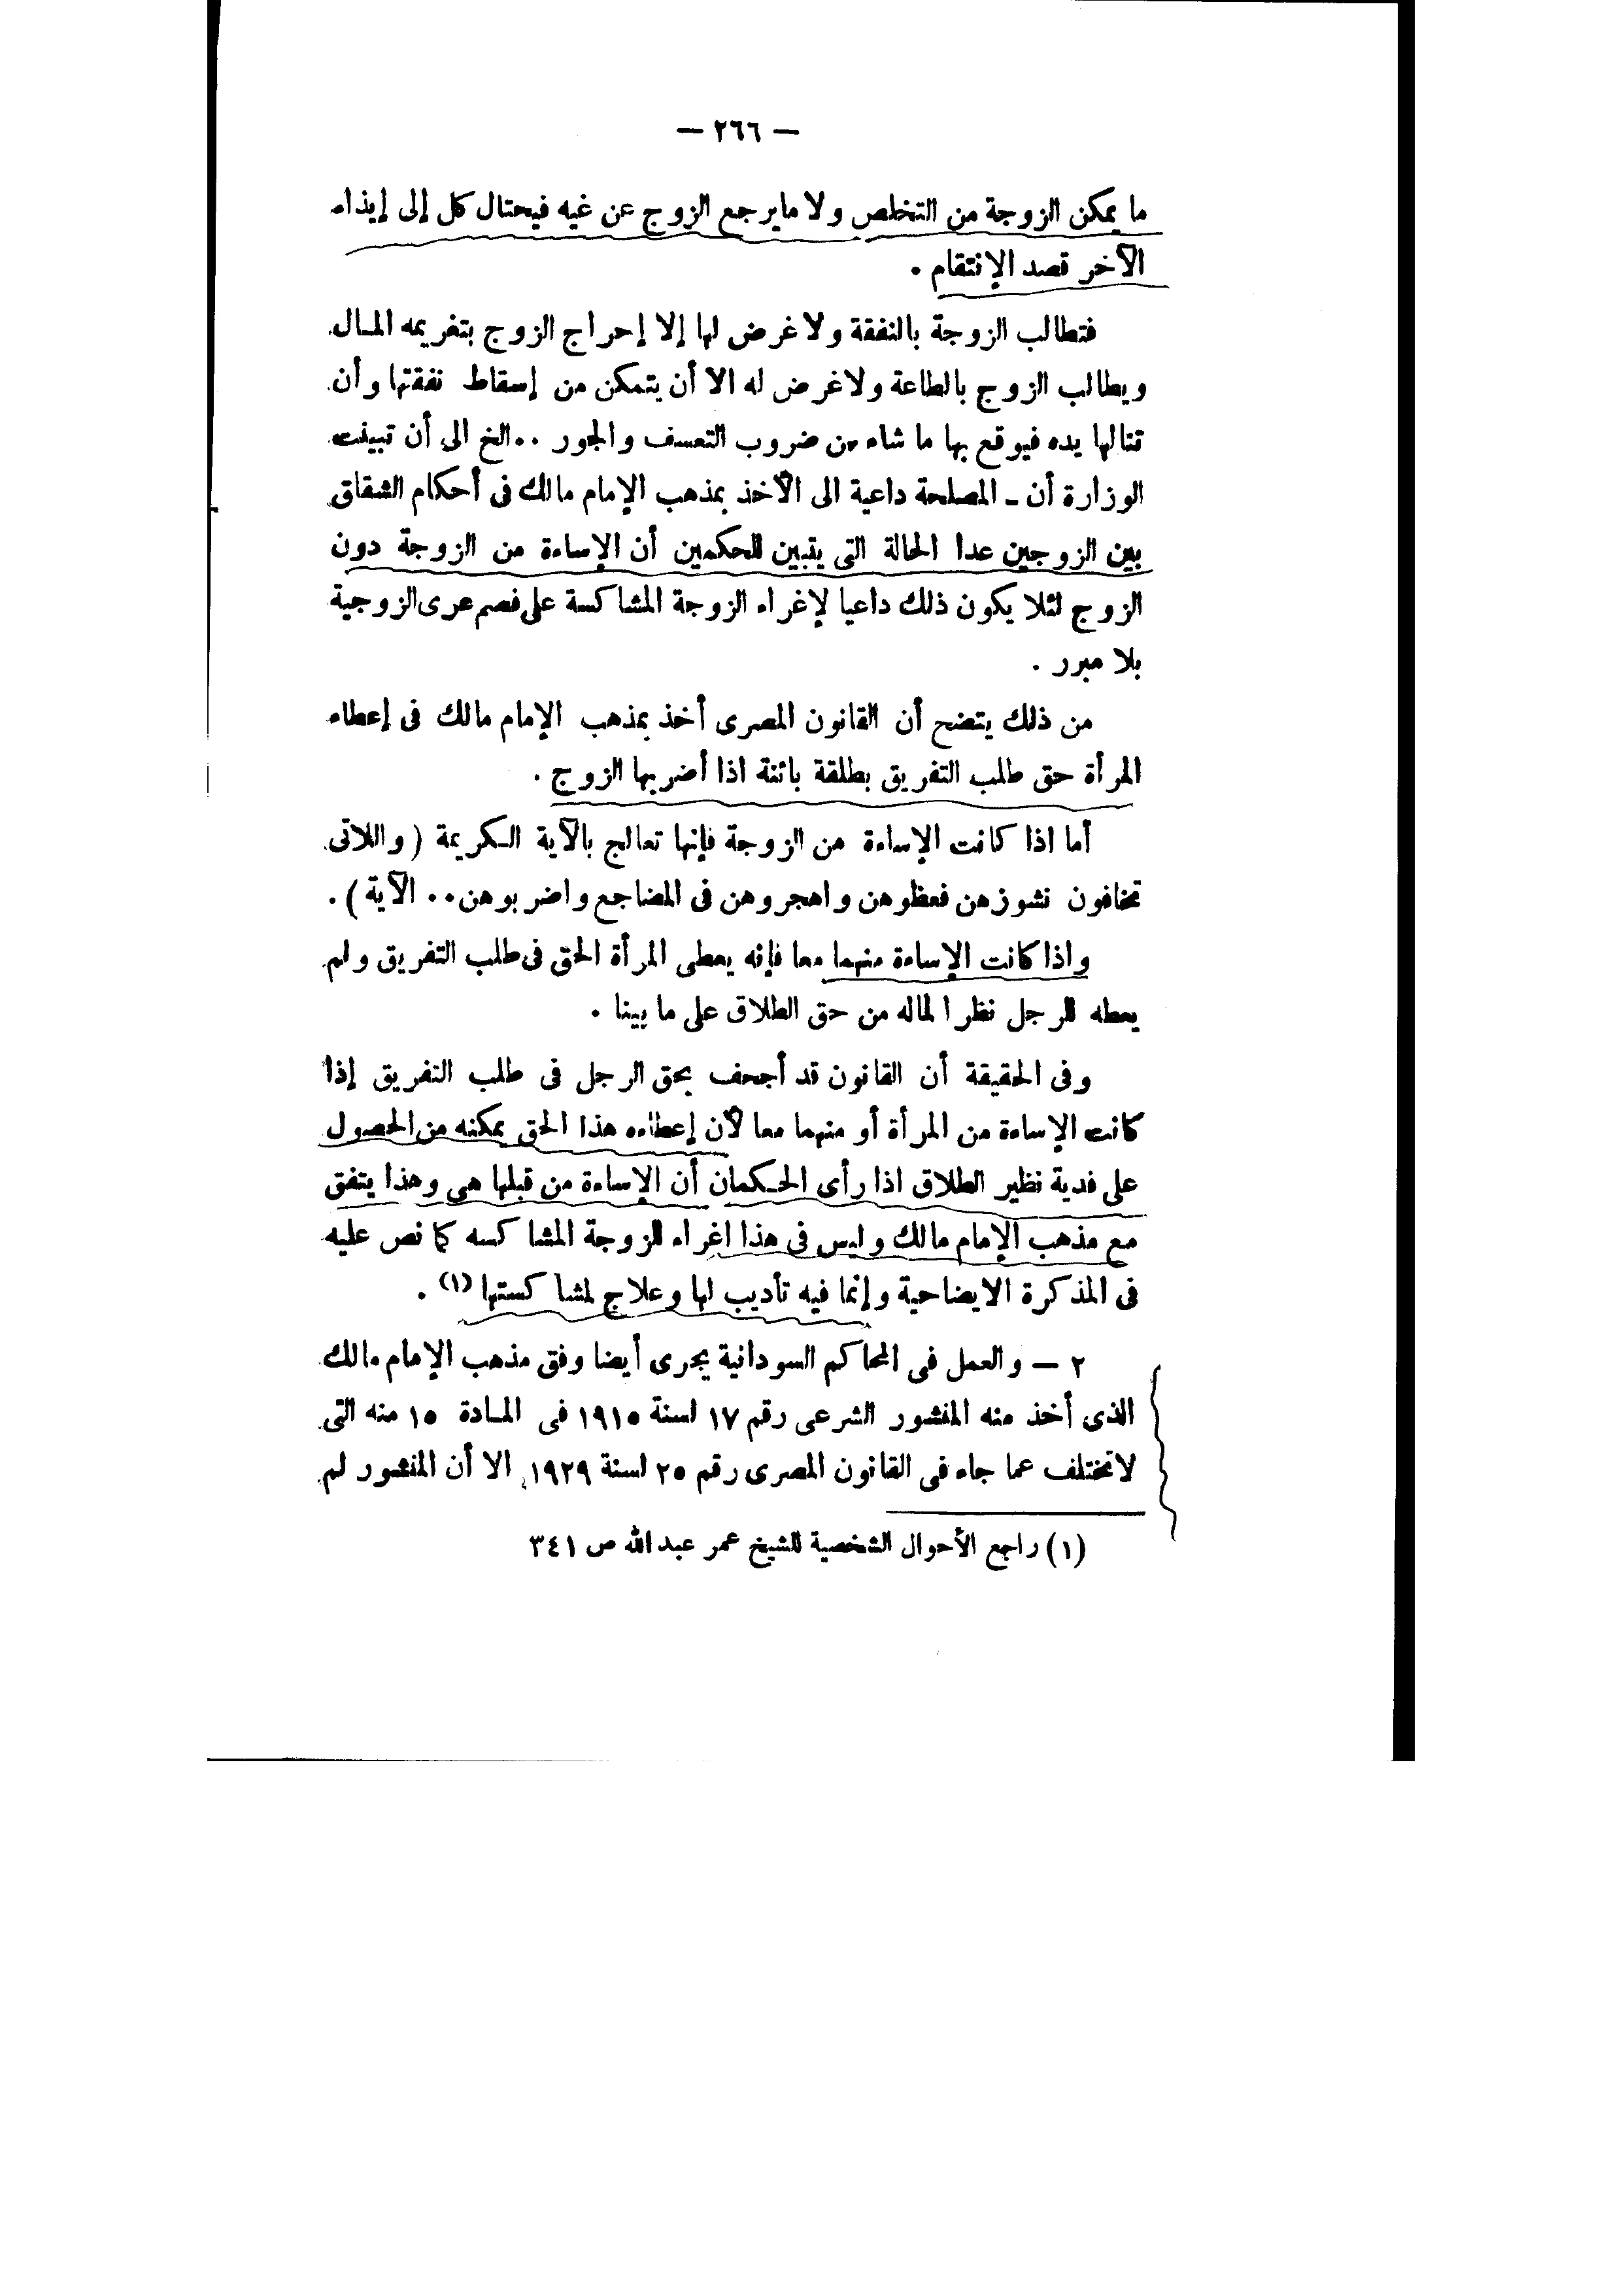 — ٢٦٦ —
ما يمكن الزوجة من التخلص ولا مايرجع الزوج عن غيه فيحتال كل إلى إيذاء
الآخر قصد الإنتقام .
فتطالب الزوجة بالنفقة ولا غرض لها إلا إحراج الزوج بتغريمه المال
ويطالب الزوج بالطاعة ولاغرض له الا أن يتمكن من إسقاط نفقتها وأن
تنالها يده فيوقع بها ما شاء من ضروب التعسف والجور .. الخ الى أن تبينت
الوزارة أن ــ المصلحة داعية الى الأخذ بمذهب الإمام مالك فى أحكام الشقاق
بين الزوجين عدا الحالة التى يتبين للحكمين أن الإساءة من الزوجة دون
الزوج لئلا يكون ذلك داعيا لإغراء الزوجة المشاكسة على فصم عرى الزوجية
بلا مبرر .
من ذلك يتضح أن القانون المصرى أخذ بمذهب الإمام مالك فى إعطاء
المرأة حق طلب التفريق بطلقة بائنة اذا أضر بها الزوج .
أما اذا كانت الإساءة من الزوجة فإنها تعالج بالآية الكريمة ( واللاتى
تخافون نشوزهن فعظوهن واهجروهن فى المضاجع واضربوهن .. الآية ) .
واذا كانت الإساءة منهما معا فإنه يعطى المرأة الحق فى طلب التفريق ولم
يعطه للرجل نظرا لماله من حق الطلاق على ما بينا .
وفى الحقيقة أن القانون قد أجحف بحق الرجل فى طلب التفريق إذا
كانت الإساءة من المرأة أو منهما معا لأن إعطاءه هذا الحق يمكنه من الحصول
على فدية نظير الطلاق اذا رأى الحكمان أن الإساءة من قبلها هى وهذا يتفق
مع مذهب الإمام مالك وليس فى هذا اغراء للزوجة المشاكسه كما نص عليه
فى المذكرة الايضاحية وإنما فيه تأديب لها وعلاج لمشاكستها (١) .
٢ — والعمل فى المحاكم السودانية يجرى أيضا وفق مذهب الإمام مالك
الذى أخذ منه المنشور الشرعى رقم ١٧ لسنة ١٩١٥ فى المادة ١٥ منه التى
لا تختلف عما جاء فى القانون المصرى رقم ٢٥ لسنة ١٩٢٩ الا أن المنشور لم
(١) راجع الأحوال الشخصية للشيخ عمر عبد الله ص ٣٤١